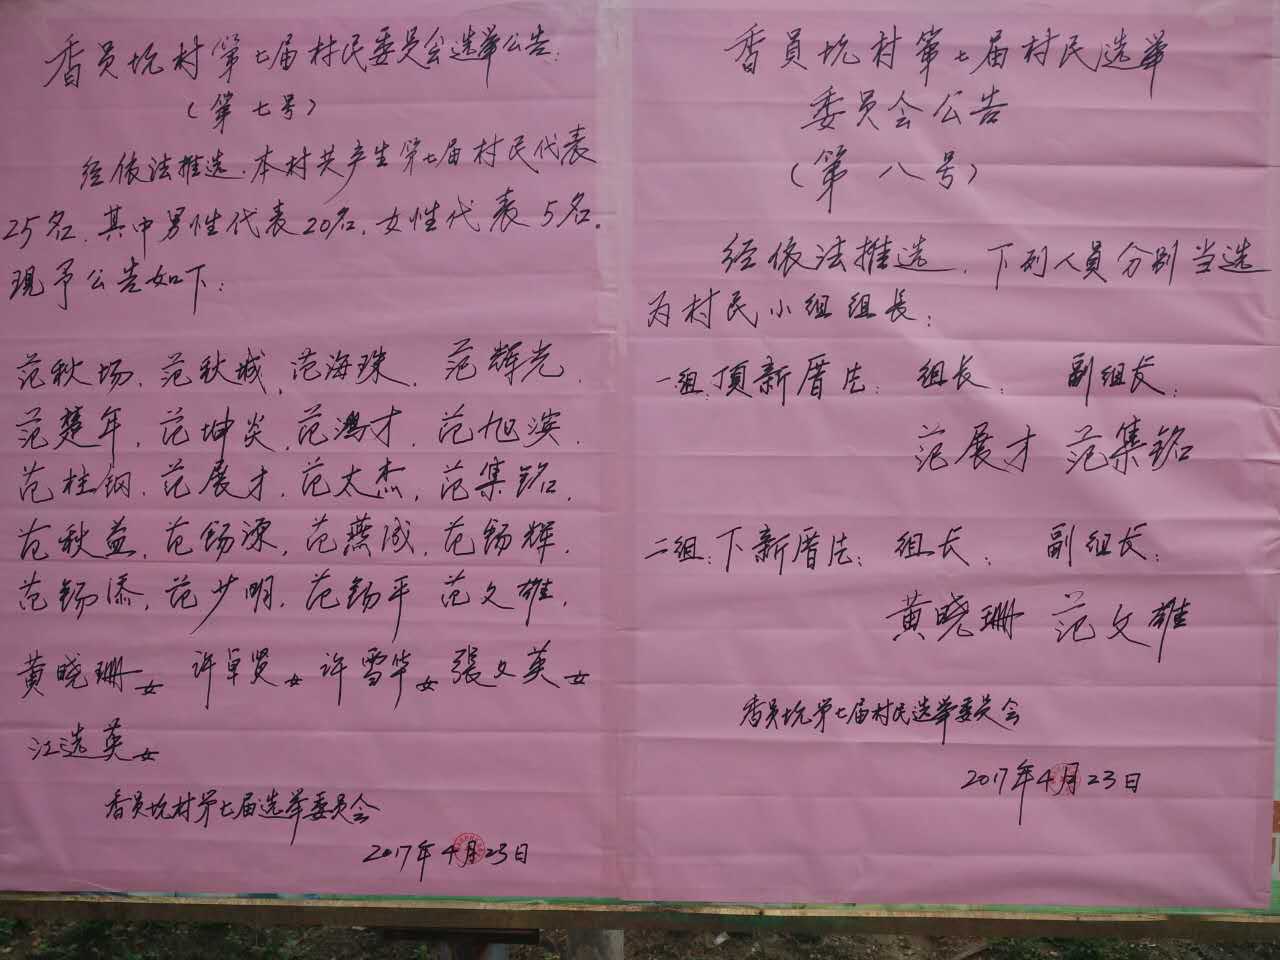 香員坑村第七届村民委员会选举公告.
（第七号）
经依法推选.本村共产生第七届村民代表
25名.其中男性代表20名,女性代表5名。
现予公告如下:
范秋场.范秋城,范海珠.范辉光.
范楚年.范坤炎.范鸿才.范旭滨.
范桂钢.范展才.范太杰,范集铭.
范秋益.范锡源,范燕城.范锡辉.
范锡添,范少明.范锡平 范文雄.
黄晓珊女 许卓贤女 许雪华女 張文英女
江选英女
香員坑村第七届选举委员会
2017年4月23日
香員坑村第七届村民选举
委员会公告
（第八号）
经依法推选.下列人員分别当选
为村民小组组長:
一组:顶新厝片: 组长: 副组长:
范展才 范集铭
二组:下新厝片: 组长: 副组长:
黄晓珊 范文雄
香員坑第七届村民选举委员会
2017年4月23日